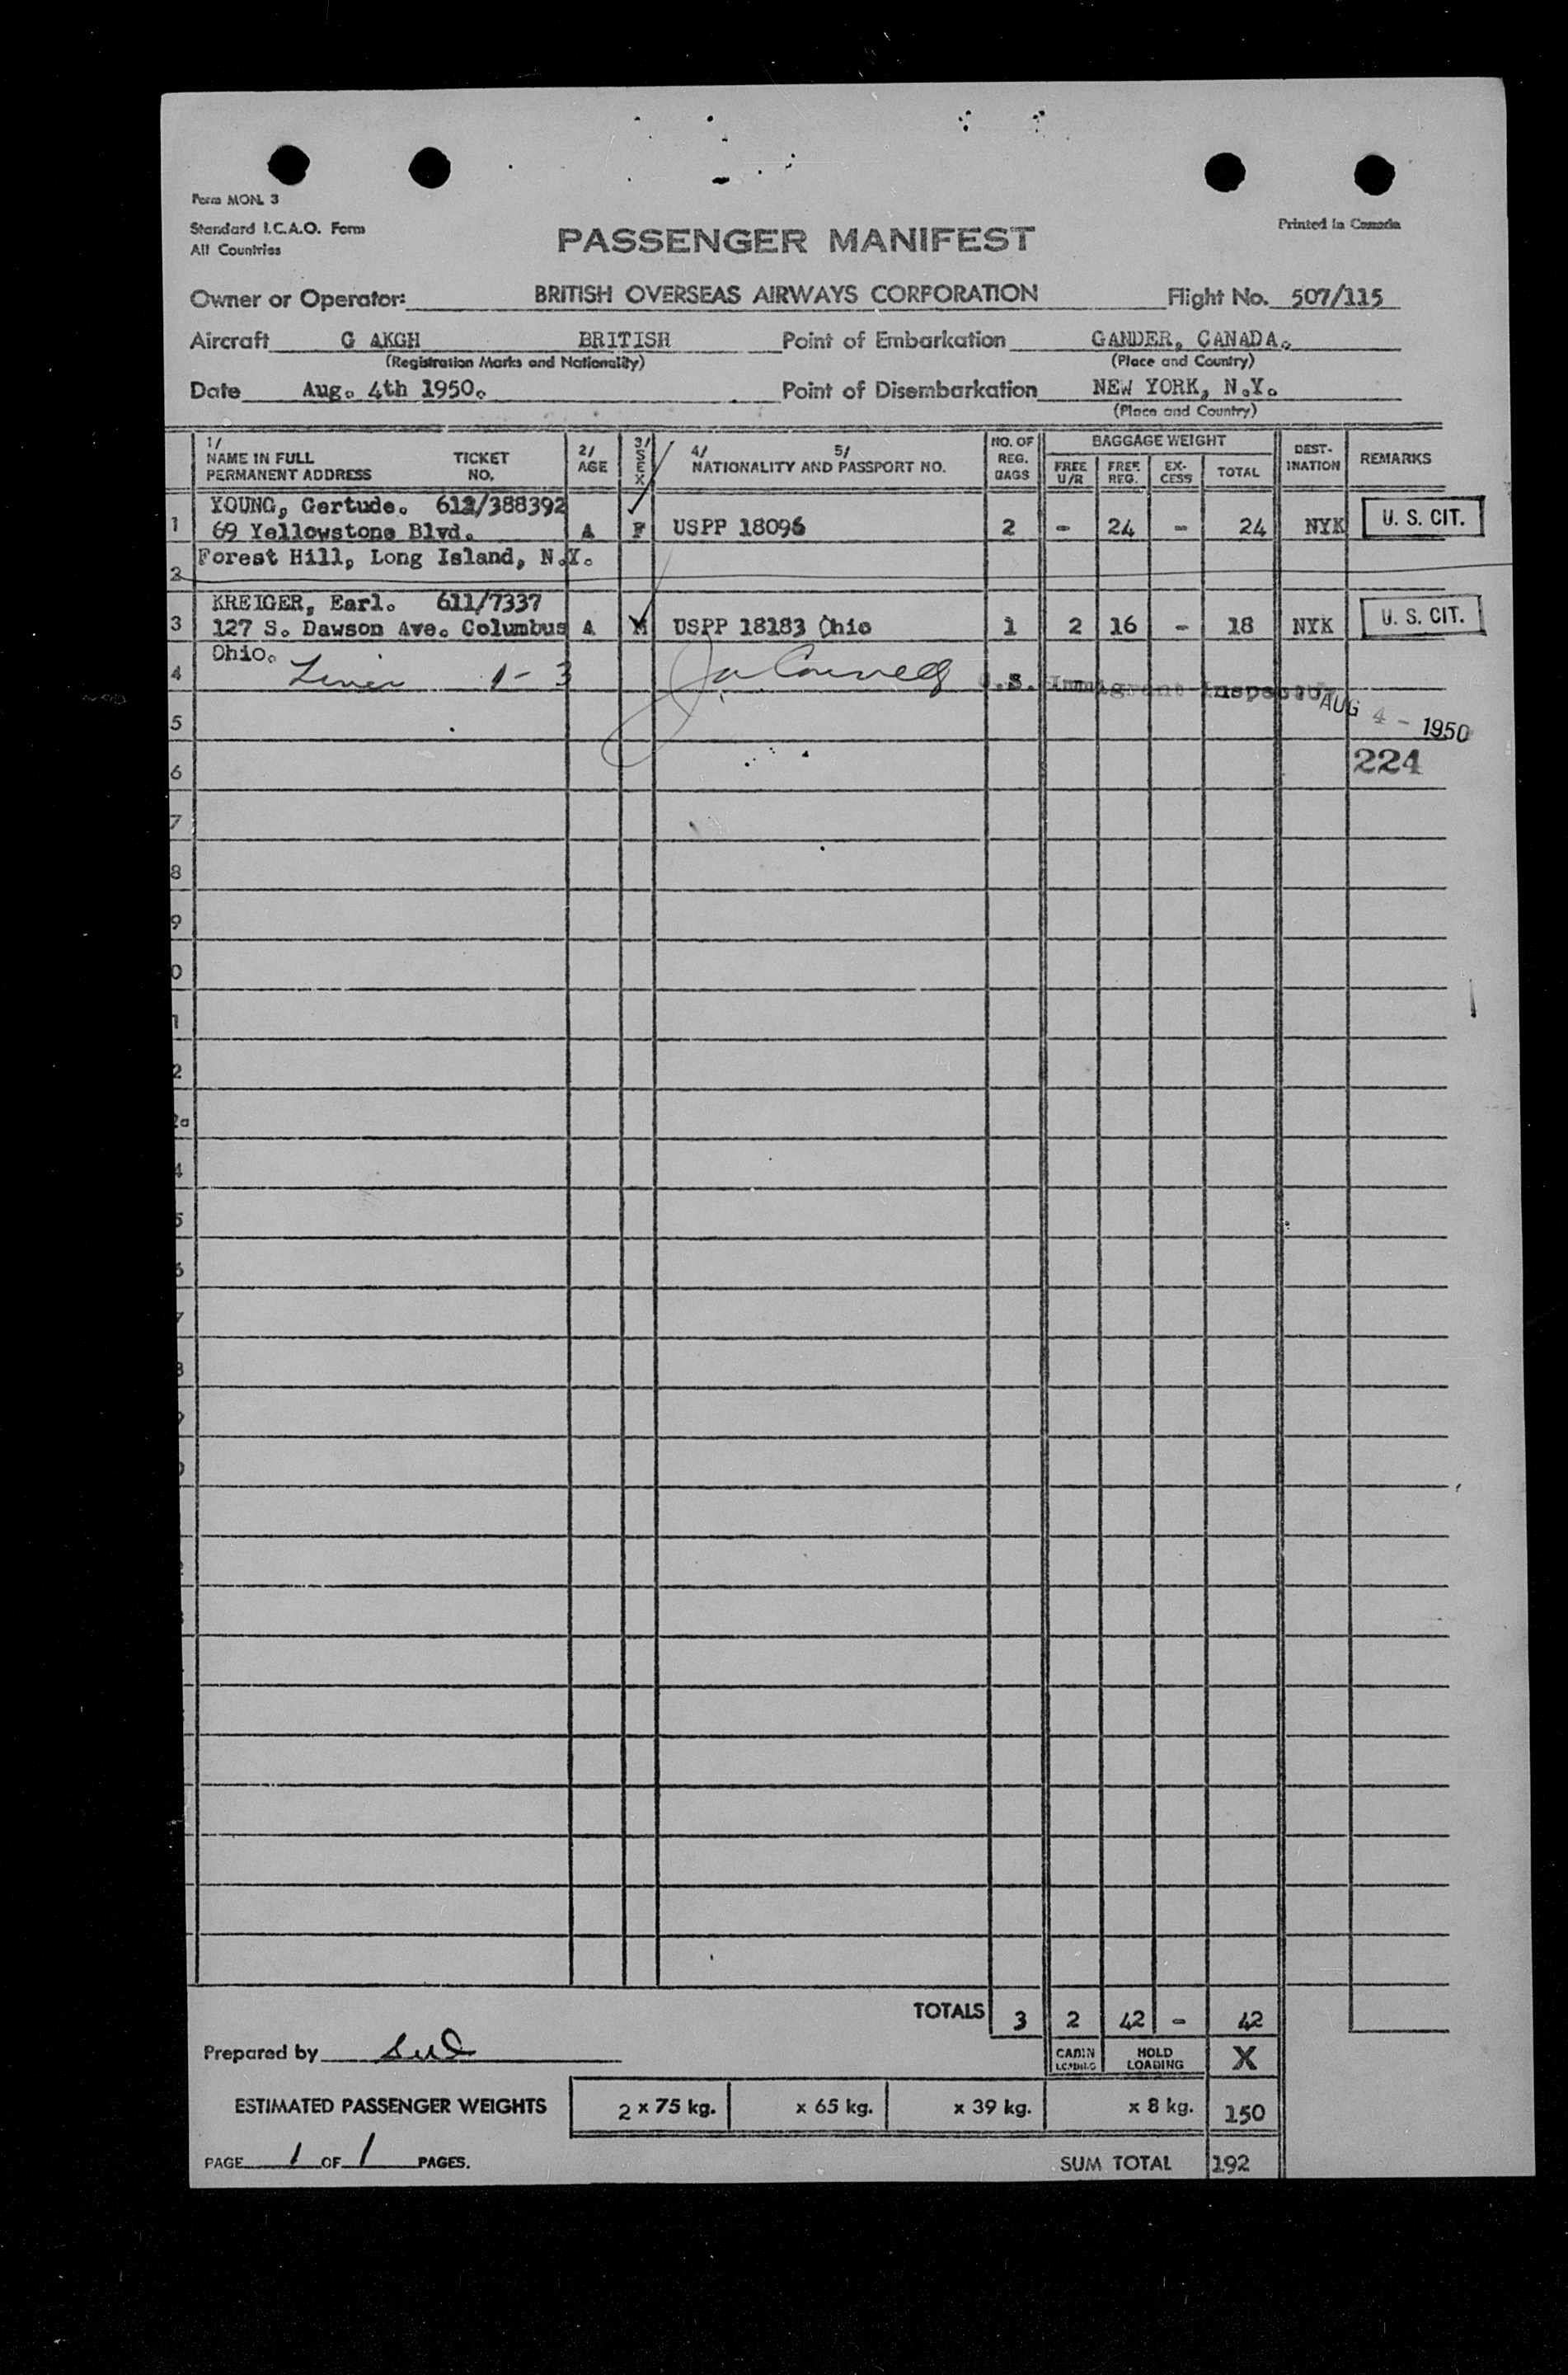 Form MON. 3
Standard I.C.A.O. Form
All Countries
Printed in Canada
PASSENGER MANIFEST
Owner or Operator: BRITISH OVERSEAS AIRWAYS CORPORATION Flight No. 507/115
Aircraft G AKGH BRITISH Point of Embarkation GANDER, CANADA.
(Registration Marks and Nationality) (Place and Country)
Date Aug. 4th 1950. Point of Disembarkation NEW YORK, N.Y.
(Place and Country)
1/ NAME IN FULL PERMANENT ADDRESS TICKET NO. 2/ AGE 3/ SEX 4/ 5/ NATIONALITY AND PASSPORT NO. NO. OF REG. BAGS BAGGAGE WEIGHT FREE U/R FREE REG. EX-CESS TOTAL DEST-INATION REMARKS
YOUNG, Gertude. 612/388392
1 69 Yellowstone Blvd. A F USPP 18096 2 - 24 - 24 NYK U. S. CIT.
Forest Hill, Long Island, N.Y.
2
KREIGER, Earl. 611/7337
3 127 S. Dawson Ave. Columbus A M USPP 18183 Ohio 1 2 16 - 18 NYK U. S. CIT.
Ohio.
4 1-3 U.S. Immigrant Inspector
AUG 4 - 1950
5
6 224
7
8
9
0
1
2
2a
4
5
6
7
8
9
0
TOTALS 3 2 42 - 42
Prepared by
CABIN LOADING HOLD LOADING X
ESTIMATED PASSENGER WEIGHTS 2 x 75 kg. x 65 kg. x 39 kg. x 8 kg. 150
PAGE 1 OF 1 PAGES. SUM TOTAL 192